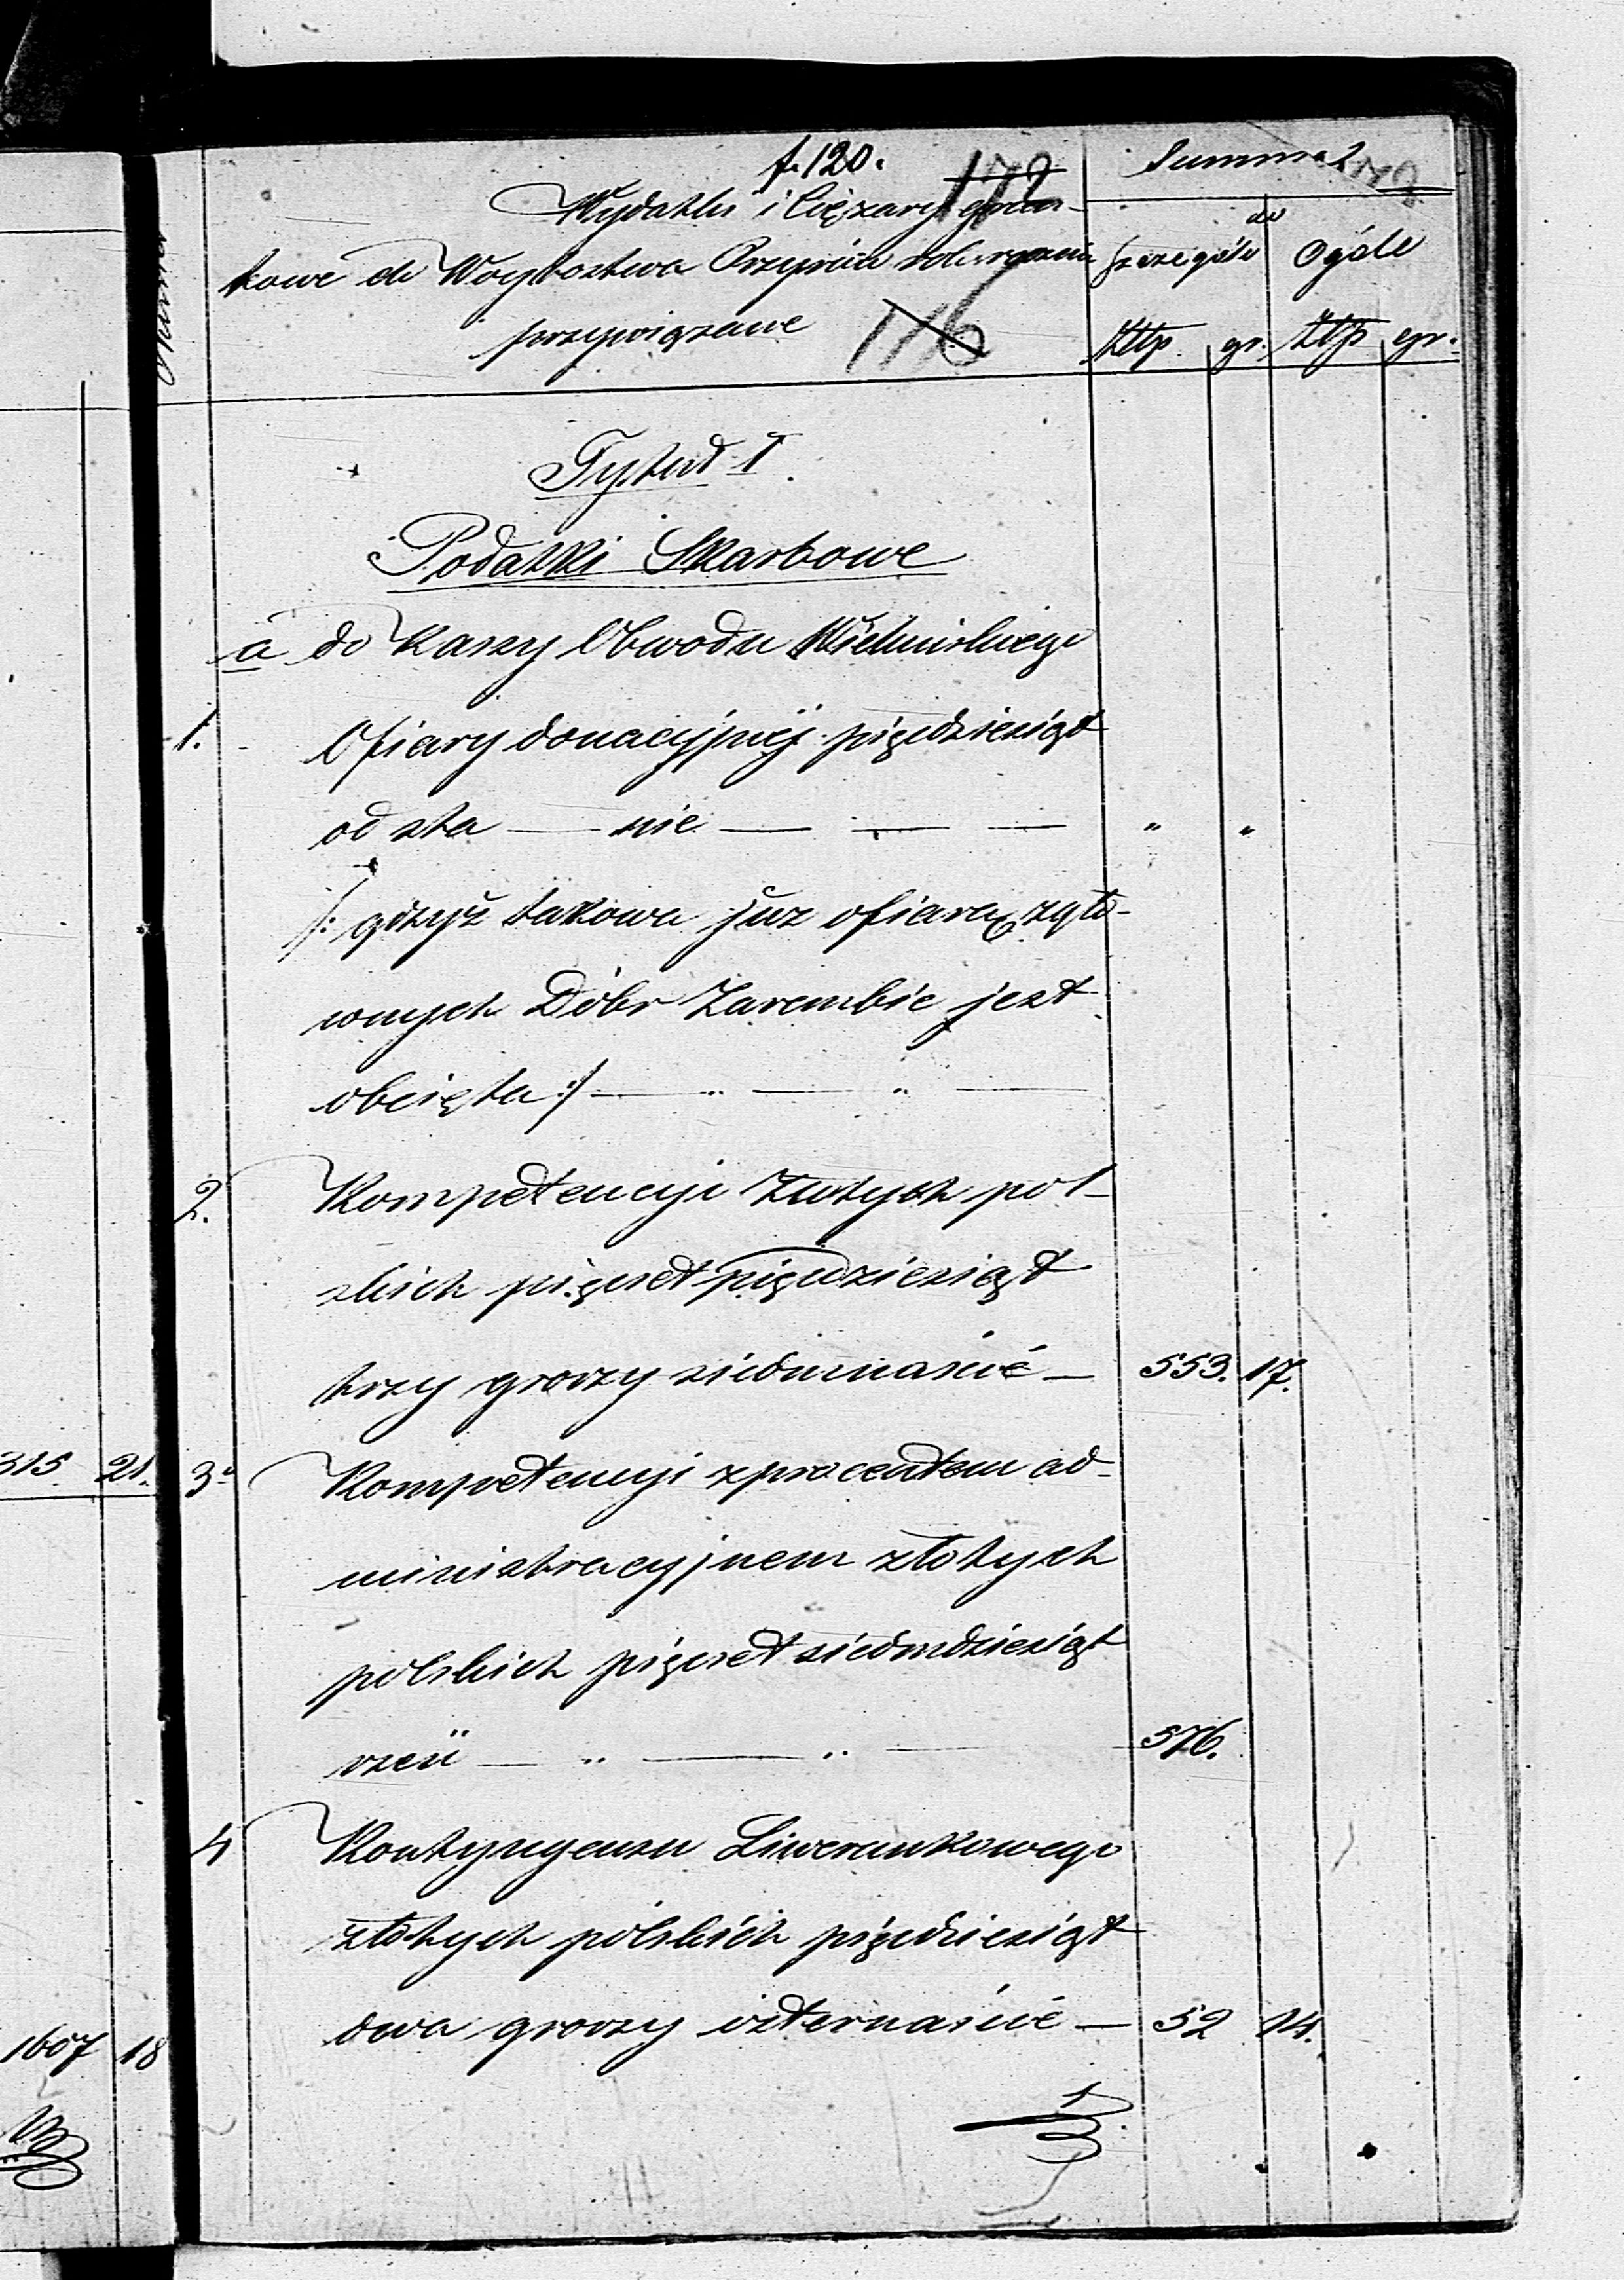 f. 120.
172
Summa
172
Wydatki i Ciężary grun-
kowe do Woytostwa Przyrów
szczególe
do
Ogóle
przywiązane
116
Złtp. gr. Złtp gr.
Tytuł I.
Podatki Skarbowe
a do Kassy Obwodu Wieluńskiego
1. Ofiary donacyjnéj pięćdziesiąt
od sta — nie — — — " "
/: gdzyż takowa juz ofiarą
wnych Dóbr Zarembic jest
obcięta :/ — " — " —
2. Kompetencyi złotych pol-
skich pięćset pięćdziesiąt
trzy groszy siedmnaście — 553. 17.
315 21.
3. Kompetencyi z procentem ad-
ministracyjnem złotych
polskich pięćset siedmdziesiąt
sześć — " — " — 576.
4 Kontyngensu Liwerunkowego
złotych polskich pięćdziesiąt
dwa groszy czternaście — 52 14.
1607 18